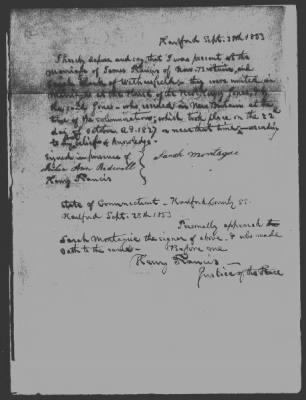 Hartford Sept. 28th 1853
I hereby depose and say, that I was present at the
marriage of James Francis of New-Britain, and
of Wethersfield - they were united in
marriage at the House of the Jones, by
the said Jones - who resided in New Britain at the
time of the solemnization; which took place on the 22
day of October A.D. 1827 or near that time - according
to my belief & knowledge.
Signed in presence of
Sarah Montague
Ann
Henry Francis
State of Connecticut - Hartford County SS.
Hartford Sept. 28th 1853
Personally appeared
Sarah Montague the signer of above & who made
Oath to the same - Before me
Henry Francis -
Justice of the Peace